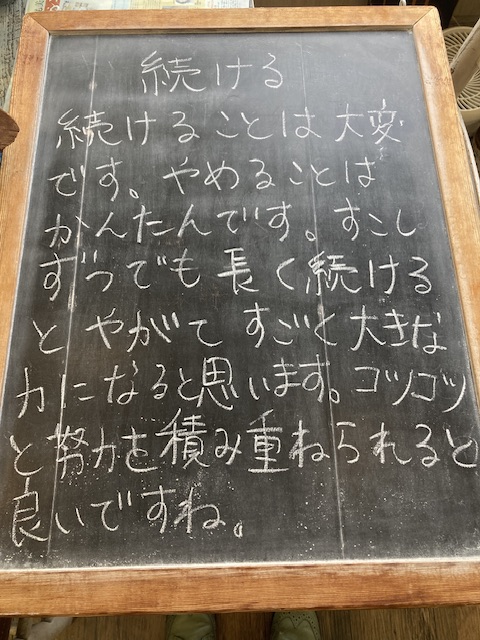 続ける
続けることは大変
です。やめることは
かんたんです。すこし
ずつでも長く続ける
とやがてすごく大きな
力になると思います。コツコツ
と努力を積み重ねられると
良いですね。